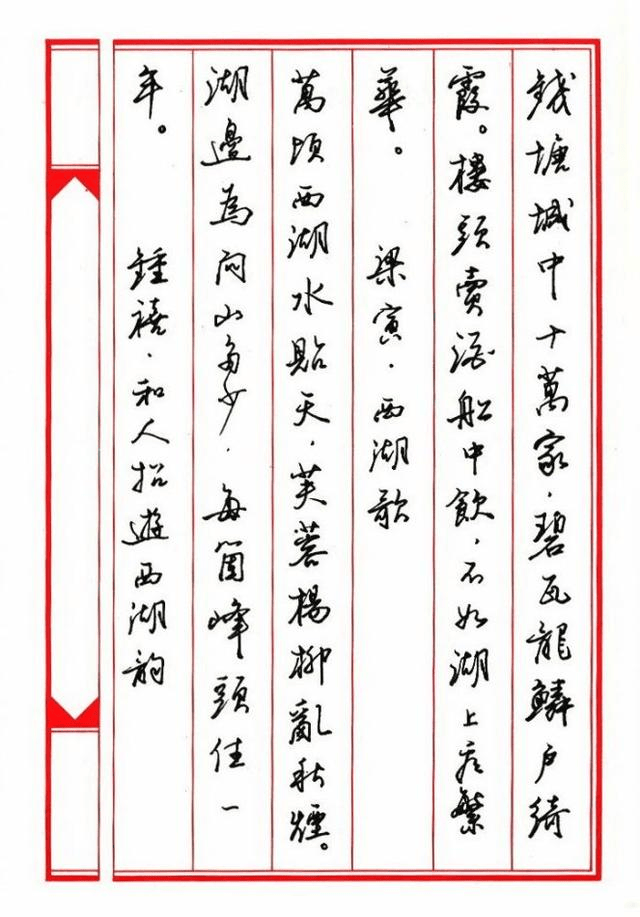 錢塘城中十萬家，碧瓦龍鱗戶綺
霞。樓頭賣酒船中飲，不如湖上繁
華。 梁寅．西湖歌
萬頃西湖水貼天，芙蓉楊柳亂秋煙。
湖邊為問山多少，每箇峰頭住一
年。 鍾禧．和人招遊西湖韵